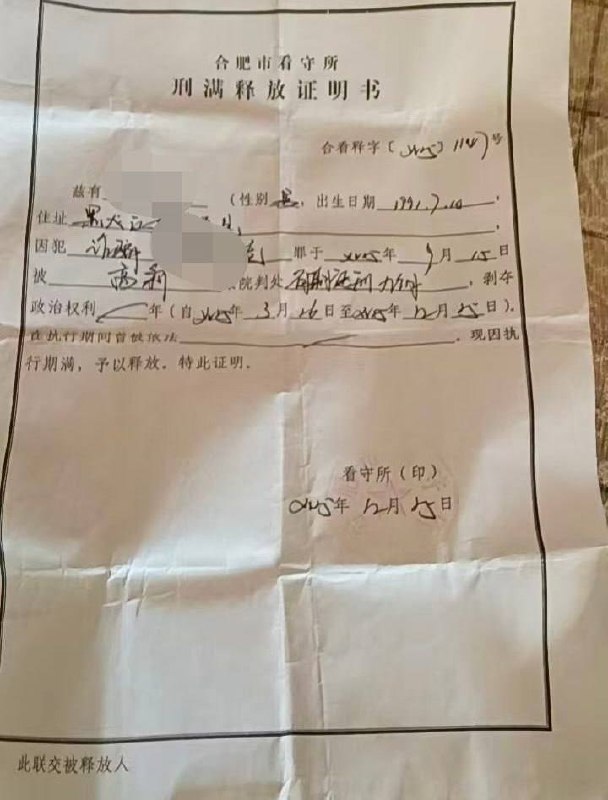 合肥市看守所
刑满释放证明书
合看释字〔2025〕1147号
兹有 （性别男，出生日期1991.7.10，
住址黑龙江
因犯诈骗 罪于2025年9月15日
被高新 院判处有期徒刑九个月，剥夺
政治权利／年（自2025年3月26日至2025年12月25日）。
在执行期间曾被依法／，现因执
行期满，予以释放。特此证明。
看守所（印）
2025年12月25日
此联交被释放人